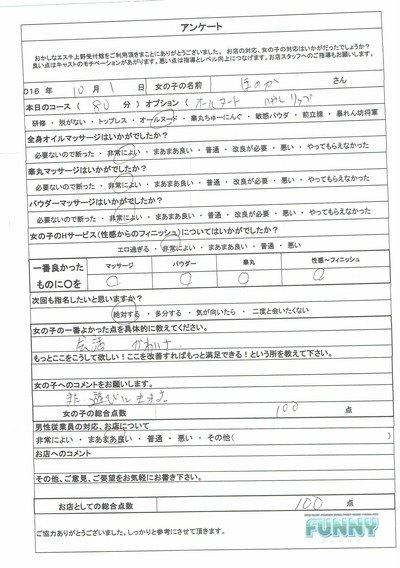 アンケート
おかしなエステ上野受付館をご利用頂きまことにありがとうございました。 お店の対応、女の子の対応はいかがだったでしょうか?
良い点はキャストのモチベーションがあがります。悪い点は指導とレベル向上につなげます。お店スタッフへのご指導もお願いします。
016 年 10 月 1 日 女の子の名前 ほのか さん
本日のコース ( 80 分 ) オプション ( オールヌード
研修 ・ 脱がない ・ トップレス ・ オールヌード ・ 睾丸ちゅーにんぐ ・ 敏感パウダ ・ 前立腺 ・ 暴れん坊将軍
全身オイルマッサージはいかがでしたか?
必要ないので断った ・ 非常によい ・ まあまあ良い ・ 普通 ・ 改良が必要 ・ 悪い ・ やってもらえなかった
睾丸マッサージはいかがでしたか?
必要ないので断った ・ 非常によい ・ まあまあ良い ・ 普通 ・ 改良が必要 ・ 悪い ・ やってもらえなかった
パウダーマッサージはいかがでしたか?
必要ないので断った ・ 非常によい ・ まあまあ良い ・ 普通 ・ 改良が必要 ・ 悪い ・ やってもらえなかった
女の子のHサービス(性感からのフィニッシュ)についてはいかがでしたか?
エロ過ぎる ・ 非常によい ・ まあまあ良い ・ 普通 ・ 悪い
一番良かったものに〇を マッサージ パウダー 睾丸 性感~フィニッシュ
次回も指名したいと思いますか?
絶対する ・ 多分する ・ 気が向いたら ・ 二度と会いたくない
女の子の一番よかった点を具体的に教えてください。
会話 かわいさ
もっとここをこうして欲しい!ここを改善すればもっと満足できる!という所を教えて下さい。
女の子へのコメントをお願いします。
又 遊びに来ます
女の子の総合点数 100 点
男性従業員の対応、お店について
非常によい ・ まあまあ良い ・ 普通 ・ 悪い ・ その他( )
お店へのコメント
その他、ご意見、ご要望をお気軽にお書き下さい。
お店としての総合点数 100 点
ご協力ありがとうございました。しっかりと参考にさせて頂きます。
FUNNY